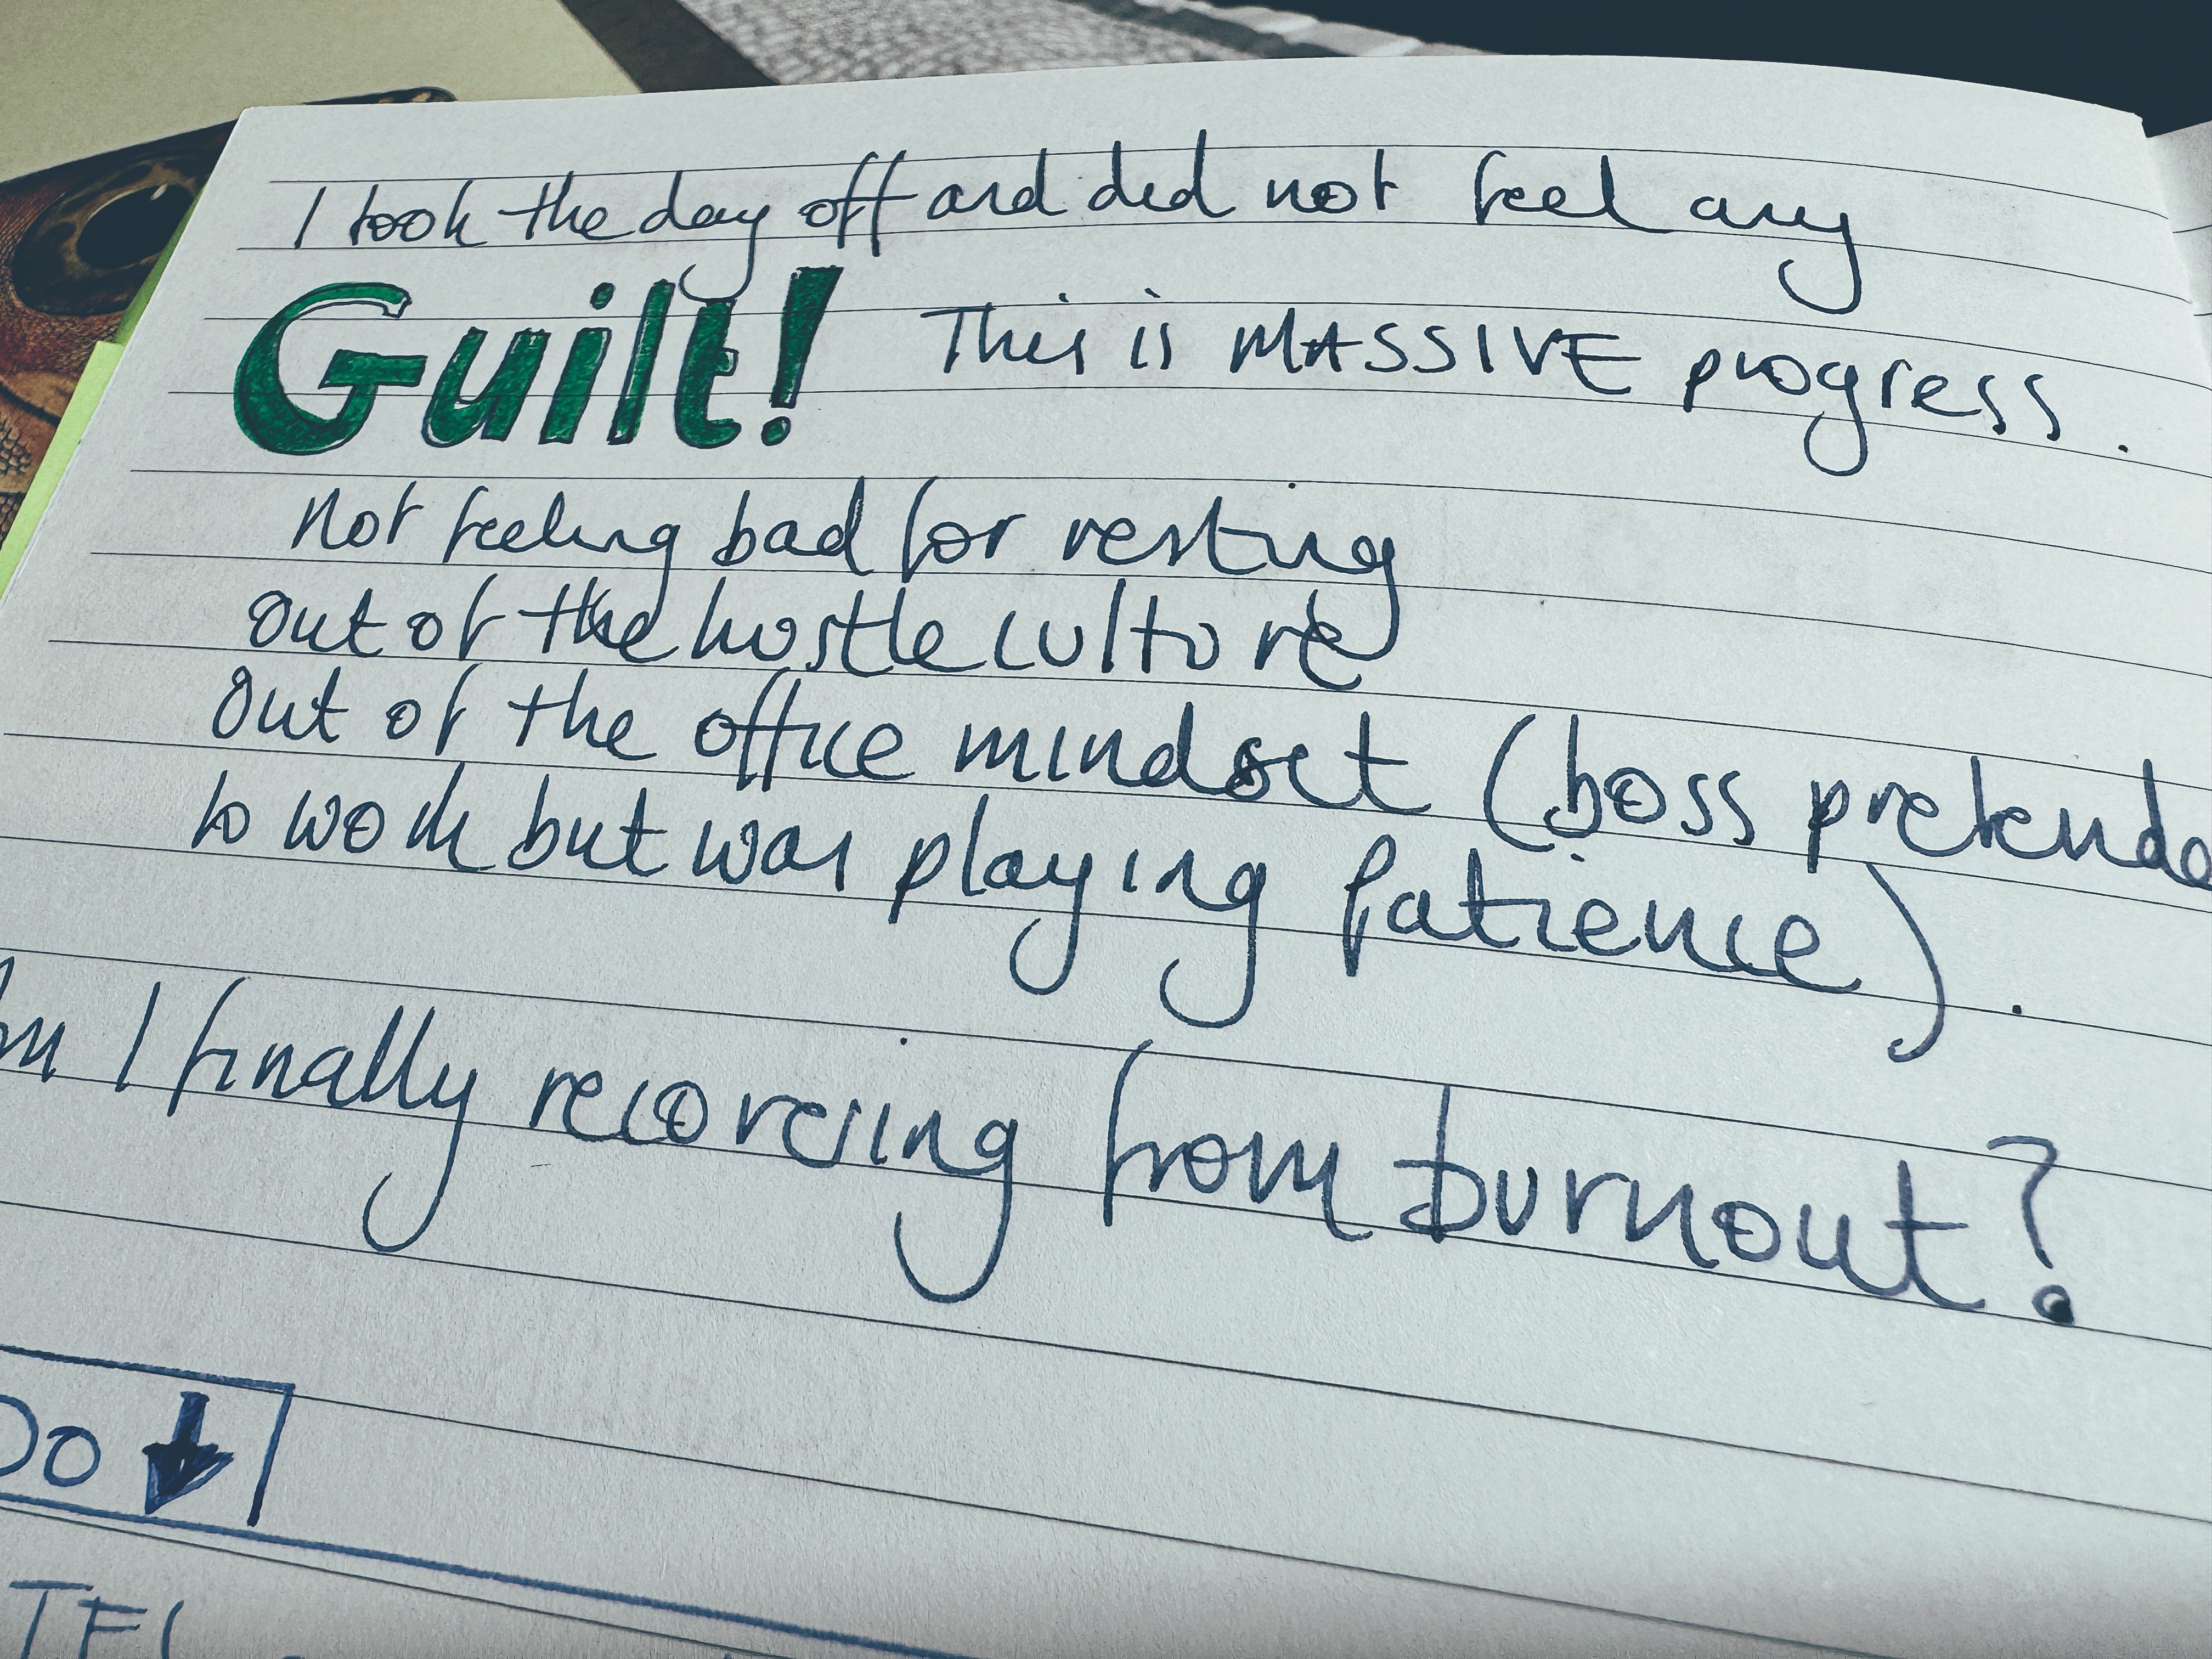 I took the day off and did not feel any
Guilt! This is MASSIVE progress.
Not feeling bad for resting
Out of the hustle culture
Out of the office mindset (boss pretende
to work but was playing Patience).
I finally recovering from burnout?
Do ↓